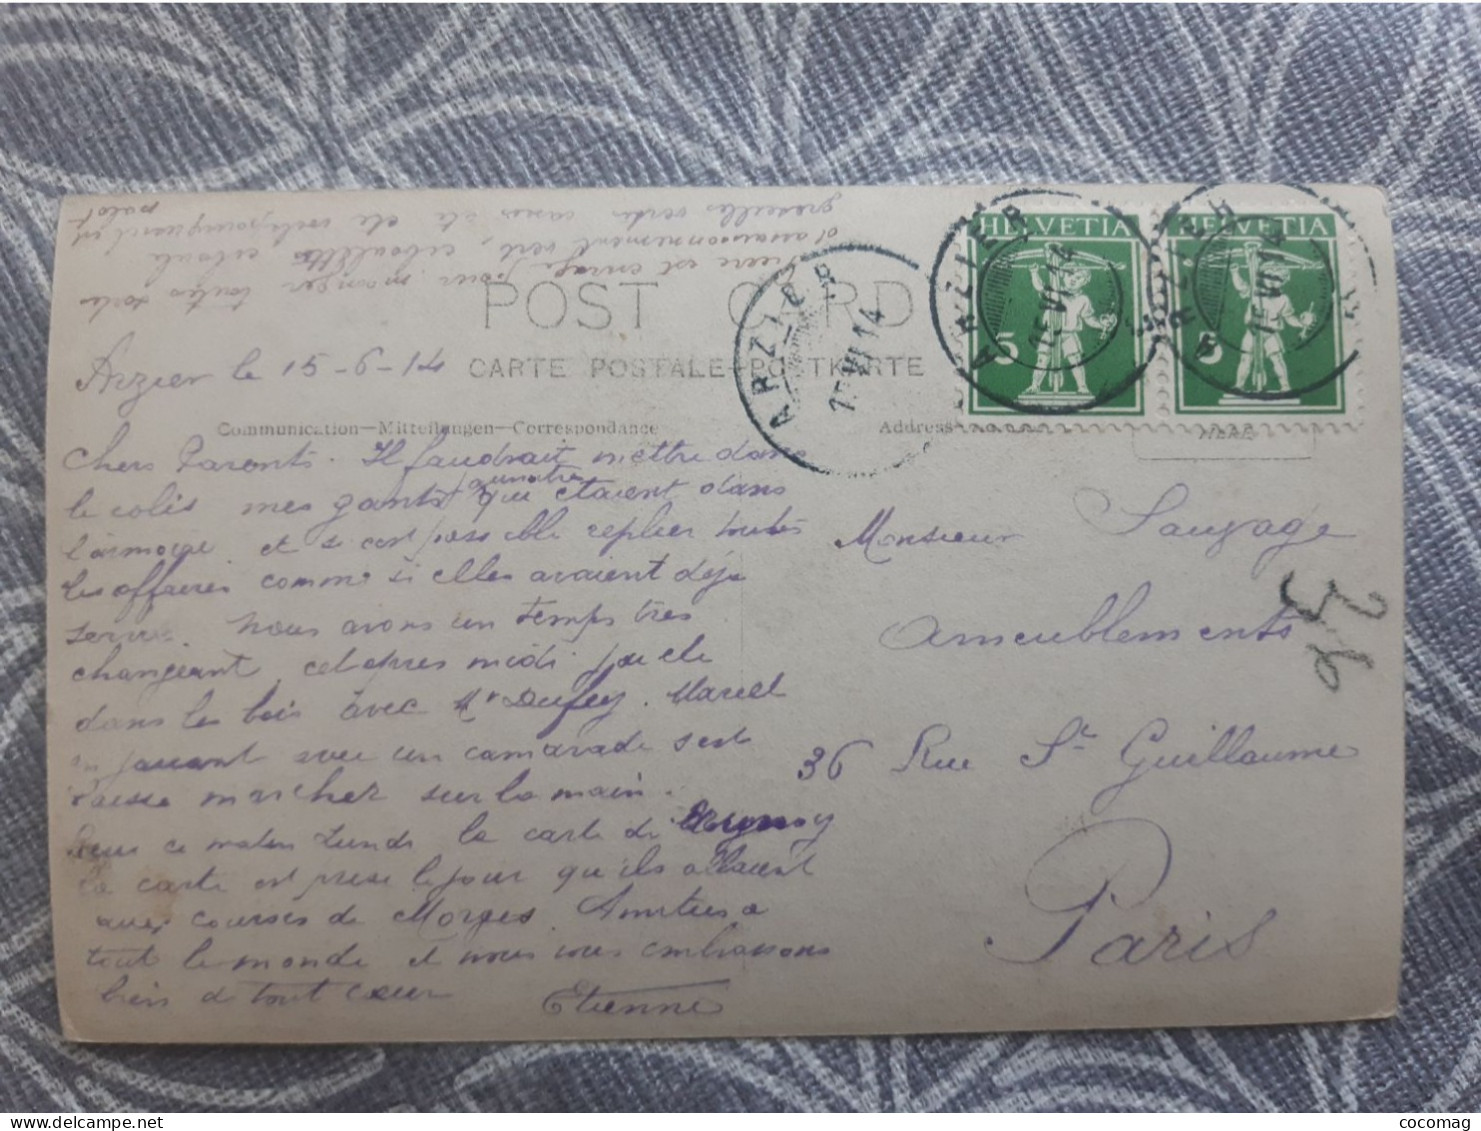 POST CARD
CARTE POSTALE—POSTKARTE
Communication—Mitteilungen—Correspondance
Address
HELVETIA
5
HELVETIA
5
ARZIER
15 VI 14
ARZIER
15 VI 14
ARZIER
15 VI 14
HERE
est enragé pour manger toutes sortes
d'assaisonnement vert, ciboulette
groseilles vertes
Arzier le 15-6-14
Chers Parents. Il faudrait mettre dans
le colis mes gants qui étaient dans
l'armoire et si c'est possible replier toutes
les affaires comme si elles avaient déjà
servi. Nous avons un temps très
changeant, cet après midi
dans les bois avec Mr Dufey. Marcel
en jouant avec un camarade s'est
laissé marcher sur la main.
ce matin lundi la carte de
la carte est prise le jour qu'ils allaient
aux courses de Morges. Amitiés a
tout le monde et nous vous embrassons
bien de tout cœur Etienne
Monsieur Sauvage
Ameublements
36 Rue St Guillaume
Paris
36
cocomag